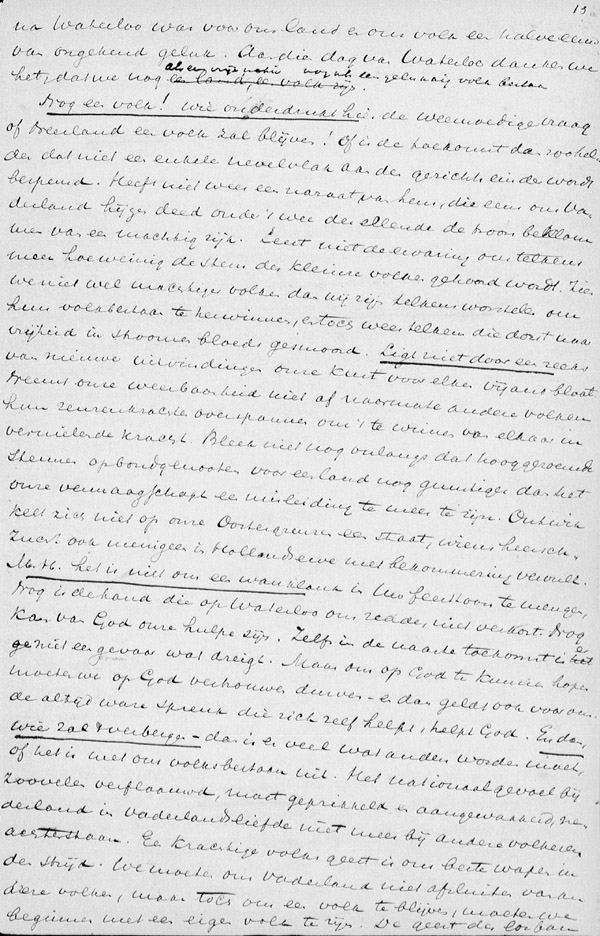 13
na Waterloo was voor ons land en ons volk een halve eeuw
van ongekend geluk. Aan die dag van Waterloo danken we
als een vrije natie nog als een gelukkig volk bestaan
het, dat we nog een land, een volk zijn.
Nog een volk! Wie onderdrukt hier de weemoedige vraag
of Neerland een volk zal blijven! Of is de toekomst dan zoo hel
der dat niet een enkele nevelvlak aan den gezichtseinder wordt
bespeurd. Heeft niet weer een van hem, die eens ons Va
derland hijgen deed onder 't wee der ellende de troon beklom
men van een machtig rijk. Leert niet de ervaring ons telkens
meer hoe weinig de stem der kleine volken gehoord wordt. Zien
we niet veel machtiger volken dan wij zijn telkens worstelen om
hun volksbestaan te herwinnen, en toch weer telken die dorst naar
vrijheid in stroomen bloeds gesmoord. Ligt niet door een reeks
van nieuwe uitvindingen onze kust voor elken vijand bloot
Neemt onze weerbaarheid niet af naarmate andere volken
hun reuzenkrachten overspannen om 't te winnen van elkaar in
vernielende kracht. Bleek niet nog onlangs dat hooggeroemde
steunen op bondgenooten voor een land nog gunstiger dan het
onze vermaagschapt een misleiding te meer te zijn. Ontwik
kelt zich niet op onze Oostergrenzen een staat, wiens heersch-
zucht ook menigeen in Hollands ewe met bekommering vervult.
M.H. het is niet om een wanklank in Uw feesttoon te mengen,
Nog is de hand die op Waterloo ons redde, niet verkort. Nog
kan van God onze hulpe zijn. Zelfs in de naaste toekomst is het
geen gevaar wat dreigt. Maar om op God te kunnen hopen
moeten we op God vertrouwen durven – en dan geldt ook voor ons
de altijd ware spreuk die zich zelf helpt, helpt God. En dan,
wie zal 't verbergen – dan is er veel wat anders worden moet,
of het is met ons volksbestaan uit. Het nationaal gevoel bij
zoovelen verflaauwd, moet geprikkeld en aangewakkerd, Ne
derland in vaderlandsliefde niet meer bij andere volkeren
achterstaan. Een krachtige volksgeest is ons beste wapen in
den strijd. We moeten ons vaderland niet afsluiten van an
dere volken, maar toch om een volk te blijven, moeten we
beginnen met een eigen volk te zijn. De geest des